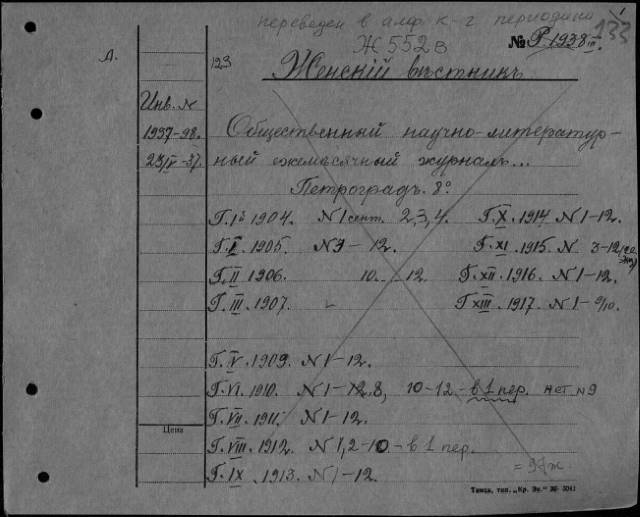 переведен в алф к-г периодики
133
Ж 552в № Р-1938 III
Д. 123
Женскій вѣстникъ
Инв. №
1937-98.
23/IV-37.
Общественный научно-литератур-
ный ежемѣсячный журналъ...
Петроградъ. 8º
Г. I й 1904. N 1 сент. 2, 3, 4. Г. X. 1914 N 1-12.
Г. I. 1905 N 3 - 12. Г. XI. 1915. N 3-12
Г. II 1906. 10. 12. Г. XII. 1916. N 1-12.
Г. III. 1907. - Г XIII. 1917. N 1- 9/10.
Г. V. 1909. N 1-12.
Г. VI. 1910. N 1-8, 10-12-в 1 пер. нет N 9
Г. VII. 1911. N 1-12.
Цена
Г. VIII. 1912. N 1, 2-10 - в 1 пер.
Г. IX. 1913. N 1-12
Тамса, тип. „Кр. Зн.“ № 5041